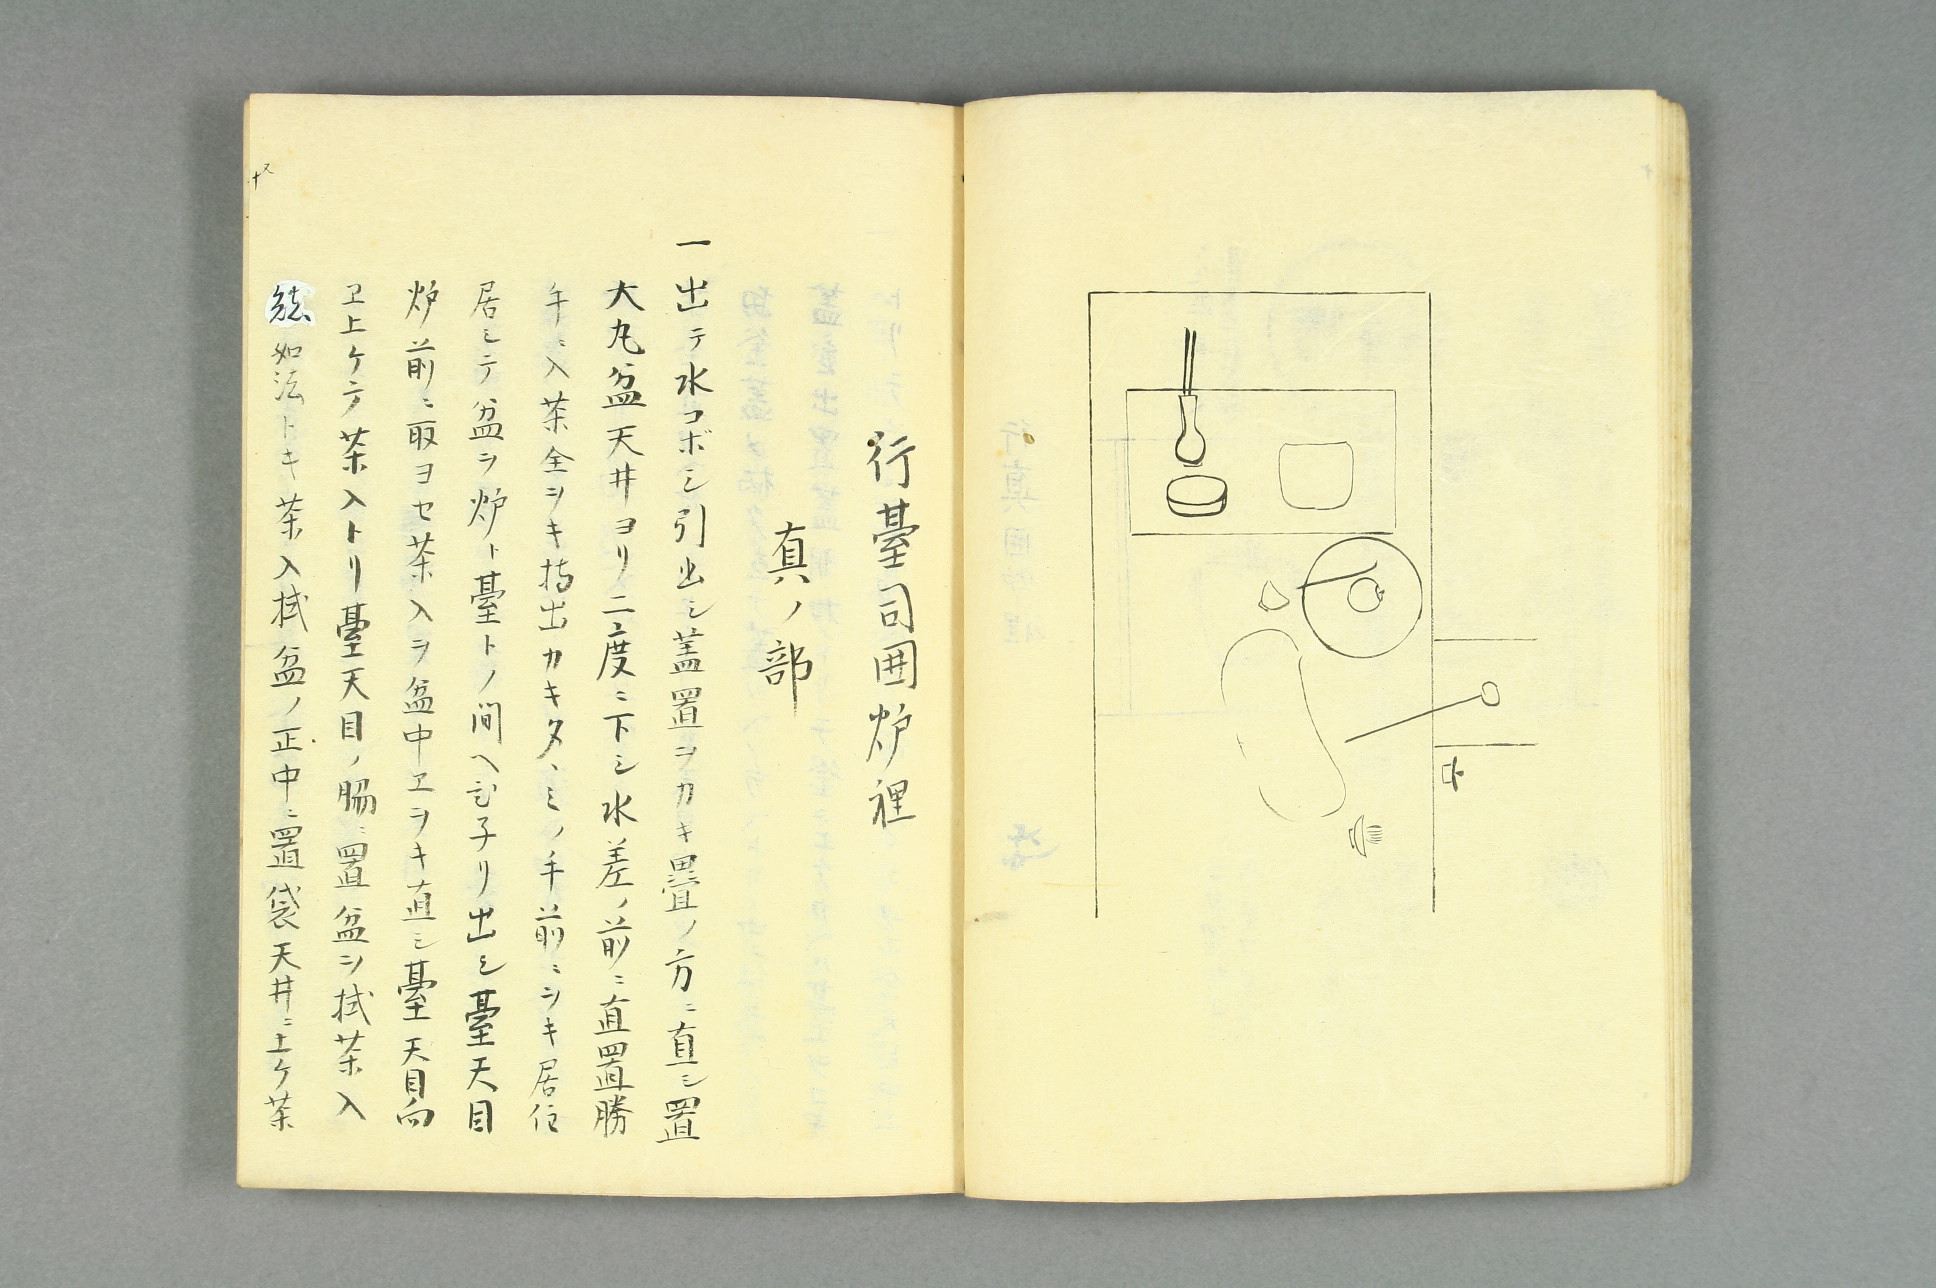 行臺司囲炉裡
真ノ部
一出テ水コボシ引出シ蓋置ヲカキ畳ノ方ニ直シ置
大丸盆天井ヨリ二度ニ下シ水差ノ前ニ直置勝
手ニ入茶全ヲキ持出カキタヽミノ手前ニヲキ居位
居シテ盆ヲ炉ト臺トノ間ヘ子リ出シ臺天目
炉前ニ取ヨセ茶入ヲ盆中エヲキ直シ臺天目向
ヱ上ケテ茶入トリ臺天目ノ脇ニ置盆ヲ拭茶入
如法トキ茶入拭盆ノ正中ニ置袋天井ニ上ケ茶